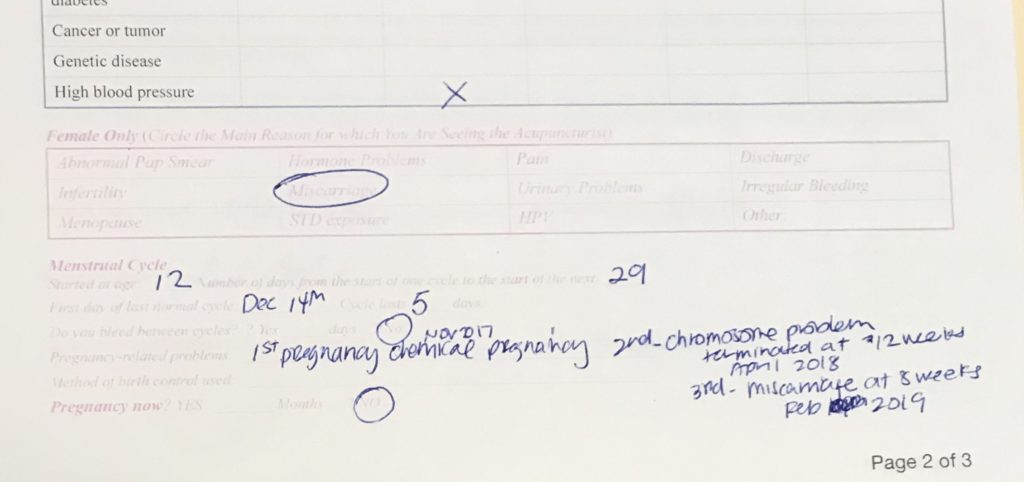 diabetes
Cancer or tumor
Genetic disease
High blood pressure X
Female Only (Circle the Main Reason for which You Are Seeing the Acupuncturist)
Abnormal Pap Smear Hormone Problems Pain Discharge
Infertility Miscarriage Urinary Problems Irregular Bleeding
Menopause STD exposure HPV Other:
Menstrual Cycle
Started at age: 12 Number of days from the start of one cycle to the start of the next: 29
First day of last normal cycle Dec 14th Cycle lasts 5 days
Do you bleed between cycles? ? Yes days No
Nov 2017
Pregnancy-related problems 1st pregnancy chemical pregnancy 2nd - chromosome problem
terminated at 12 weeks
April 2018
Method of birth control used:
3rd - miscarriage at 8 weeks
Feb 2019
Pregnancy now? YES Months NO
Page 2 of 3